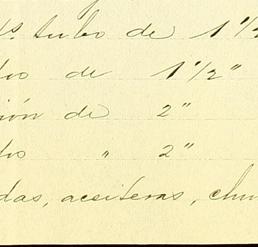 tubo de 1 1/2
de 1 1/2"
ión de 2"
" 2"
das, aceiteras,